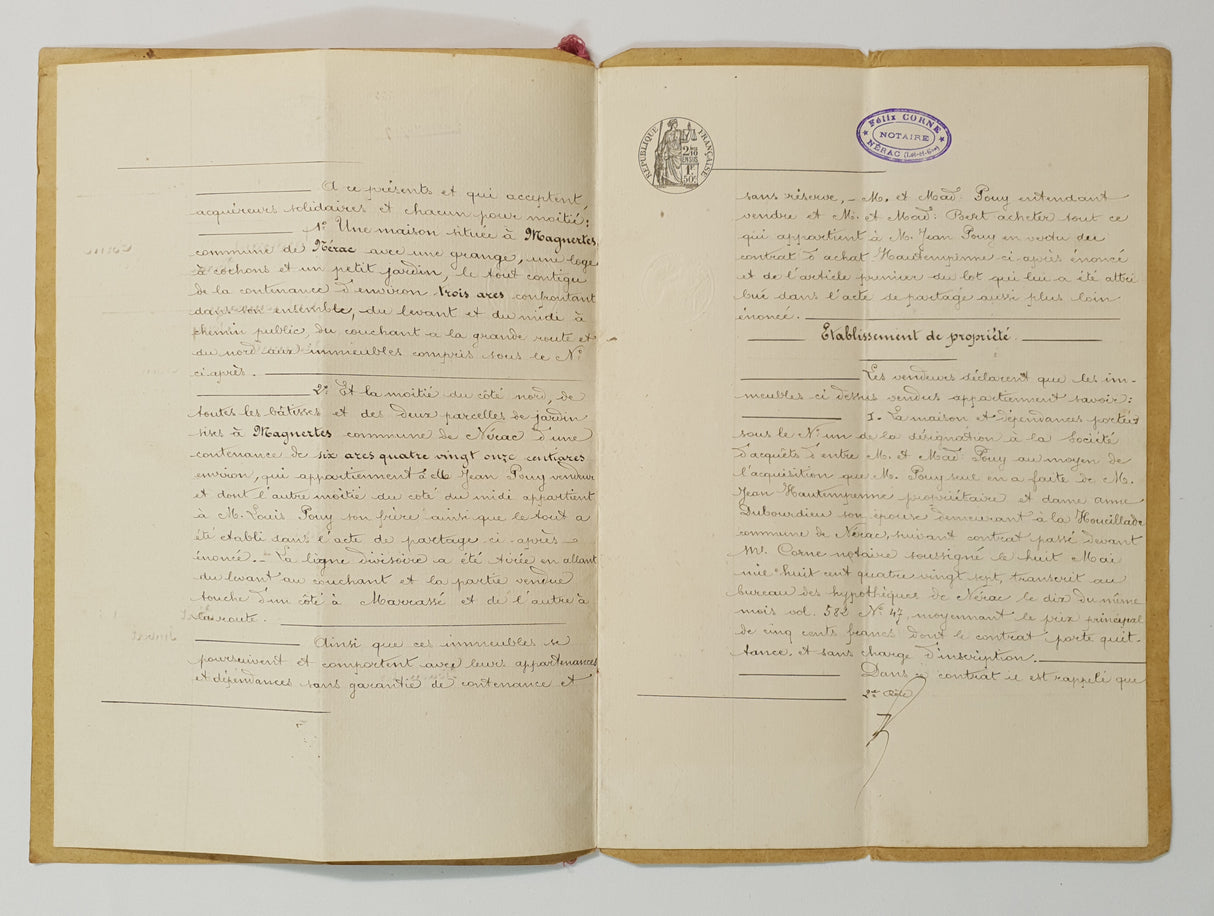 A ce présents et qui acceptent,
acquéreurs solidaires et chacun pour moitié:
1º Une maison située à Magnertes
commune de Nérac avec une grange, une loge
à cochons et un petit jardin, le tout contigu
de la contenance d'environ trois ares confrontant
dans son ensemble, du levant et du midi à
chemin public, du couchant à la grande route et
du nord aux immeubles compris sous le Nº
ci après.
2º Et la moitié du côté nord, de
toutes les bâtisses et des deux parcelles de jardin
sises à Magnertes commune de Nérac d'une
contenance de six ares quatre vingt onze centiares
environ, qui appartiennent à M. Jean Pouy vendeur
et dont l'autre moitié du côté du midi appartient
à M. Louis Pouy son frère ainsi que le tout a
été établi dans l'acte de partage ci-après
énoncé. – La ligne divisoire a été tirée en allant
du levant au couchant et la partie vendue
touche d'un côté à Marrassé et de l'autre à
la route.
Ainsi que ces immeubles se
poursuivent et comportent avec leurs appartenances
et dépendances sans garantie de contenance et
RÉPUBLIQUE FRANÇAISE
2 10es
EN SUS
1F
50c
Félix CORNE
NOTAIRE
NÉRAC (Lot-et-Gne)
sans réserve, – M. et Mad: Pouy entendant
vendre et M. et Mad: Bert acheter tout ce
qui appartient à M. Jean Pouy en vertu du
contrat d'achat Hautempenne ci-après énoncé
et de l'article premier du lot qui lui a été attri
bué dans l'acte de partage aussi plus loin
énoncé.
Etablissement de propriété.
Les vendeurs déclarent que les im-
meubles ci dessus vendus appartiennent savoir:
I. La maison et dépendances portées
sous le Nº un de la désignation à la Société
d'acquêts d'entre M. et Mad: Pouy au moyen de
l'acquisition que M. Pouy seul en a faite de M.
Jean Hautempenne propriétaire et dame Anne
Dubourdieu son épouse demeurant à la Houeillade
commune de Nérac, suivant contrat passé devant
Me. Corne notaire soussigné le huit Mai
mil huit cent quatre vingt sept, transcrit au
bureau des hypothèques de Nérac le dix du même
mois vol. 582 Nº 47 moyennant le prix principal
de cinq cents francs dont le contrat porte quit-
tance, et sans charge d'inscription.
Dans ce contrat il est rappelé que
2me Rôle